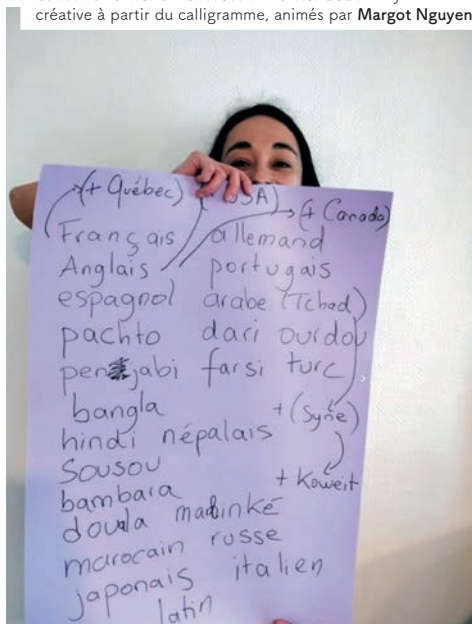 créative à partir du calligramme, animés par Margot Nguyen
(+ Québec) (USA) (+ Canada)
Français allemand
Anglais portugais
espagnol arabe (Tchad)
pachto dari ourdou
penjabi farsi turc
bangla + (Syrie)
hindi népalais
Sousou + Koweït
bambara
douala malinké
marocain russe
japonais italien
latin